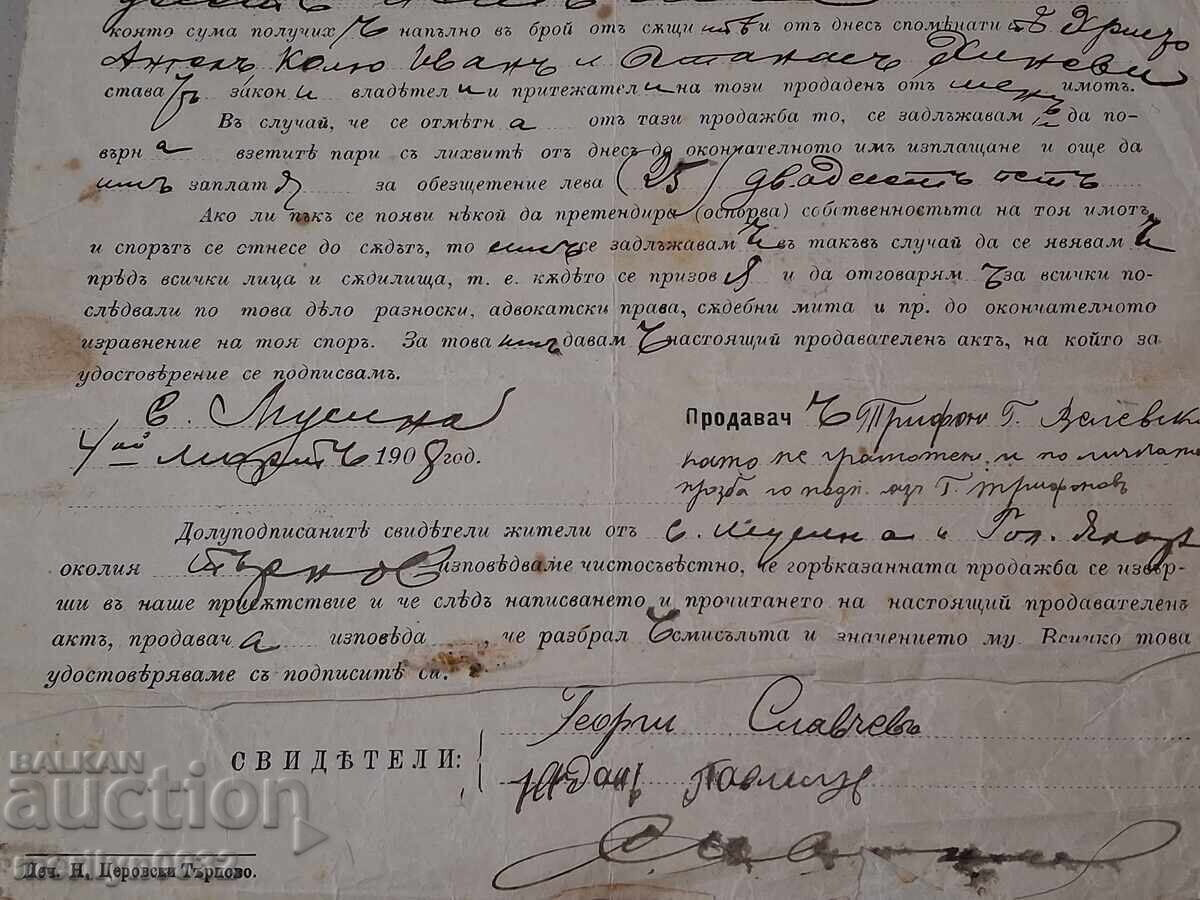 която сума получихъ напълно въ брой отъ сѫщитѣ и отъ днесъ споменатитѣ
Ангелъ Колю Иванъ и Атанасъ
ставатъ законни владѣтели и притежатели на този продаденъ отъ менъ имотъ.
Въ случай, че се отмѣтна отъ тази продажба то, се задлъжавамъ да по-
върна взетитѣ пари съ лихвитѣ отъ днесъ до окончателното имъ изплащане и още да
имъ заплатя за обезщетение лева (25) двадесетъ петь
Ако ли пъкъ се появи нѣкой да претендира (оспорва) собственостьта на тоя имотъ
и спорътъ се отнесе до сѫдътъ, то имъ се задлъжавамъ въ такъвъ случай да се явявамъ
прѣдъ всички лица и сѫдилища, т. е. кѫдѣто се призовя и да отговарямъ за всички по-
слѣдвали по това дѣло разноски, адвокатски права, сѫдебни мита и пр. до окончателното
изравнение на тоя споръ. За това имъ давамъ настоящий продавателенъ актъ, на който за
удостовѣрение се подписвамъ.
с. Мусина
4ий мартъ 1908 год.
Продавачъ Трифонъ Г.
като не грамотен и по личната
прозба го подп. азъ Г. Трифоновъ
Долуподписанитѣ свидѣтели жители отъ с. Мусина и Гол.
околия Търнов изповѣдваме чистосъвѣстно, че горѣказанната продажба се извър-
ши въ наше присѫтствие и че слѣдъ написването и прочитането на настоящий продавателенъ
актъ, продавача изповѣда, че разбралъ смисълъта и значението му. Всичко това
удостовѣряваме съ подписитѣ си.
СВИДѢТЕЛИ:
Георги Славчевъ
Павлиц
BALKAN
auction
Печ. Н. Церовски Търново.